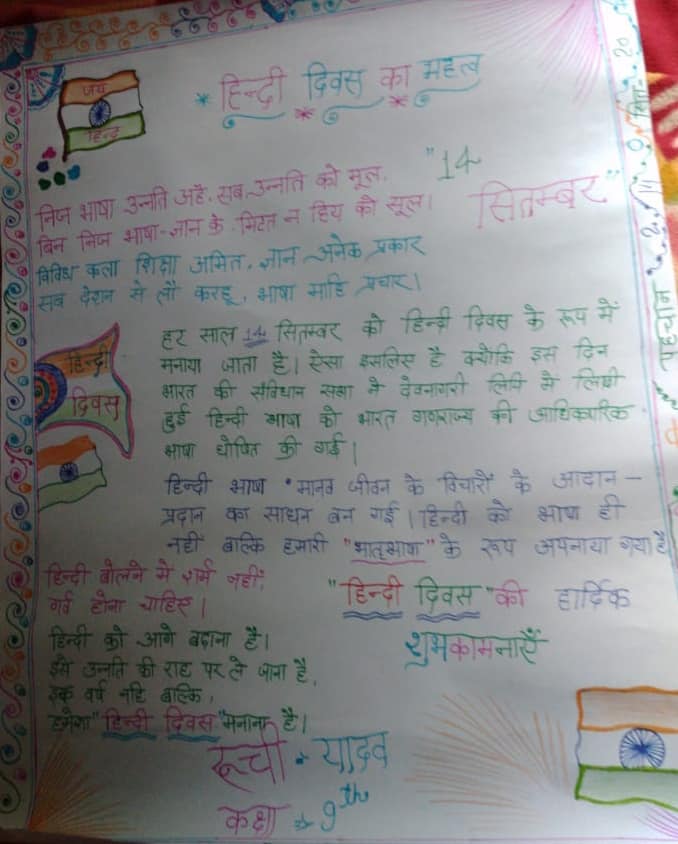 जय
हिन्द
* हिन्दी दिवस का महत्व
"14
सितम्बर"
निज भाषा उन्नति अहै, सब उन्नति को मूल,
बिन निज भाषा-ज्ञान के मिटत न हिय को सूल।
विविध कला शिक्षा अमित, ज्ञान अनेक प्रकार
सब देशन से लौ करहू, भाषा माहि प्रचार।
हर साल 14 सितम्बर को हिन्दी दिवस के रूप में
मनाया जाता है। ऐसा इसलिए है क्योंकि इस दिन
भारत की संविधान सभा ने देवनागरी लिपि में लिखी
हुई हिन्दी भाषा को भारत गणराज्य की आधिकारिक
भाषा घोषित की गई।
हिन्दी
दिवस
हिन्दी भाषा मानव जीवन के विचारों के आदान-
प्रदान का साधन बन गई। हिन्दी को भाषा ही
नहीं बल्कि हमारी "मातृभाषा" के रूप अपनाया गया है
हिन्दी बोलने मे शर्म नहीं,
गर्व होना चाहिए।
"हिन्दी दिवस" की हार्दिक
शुभकामनाएँ
हिन्दी को आगे बढ़ाना है।
इसे उन्नति की राह पर ले जाना है,
इक वर्ष नहि बल्कि,
"हिन्दी दिवस" मनाना है।
रूची - यादव
कक्षा → 9th
पहचान